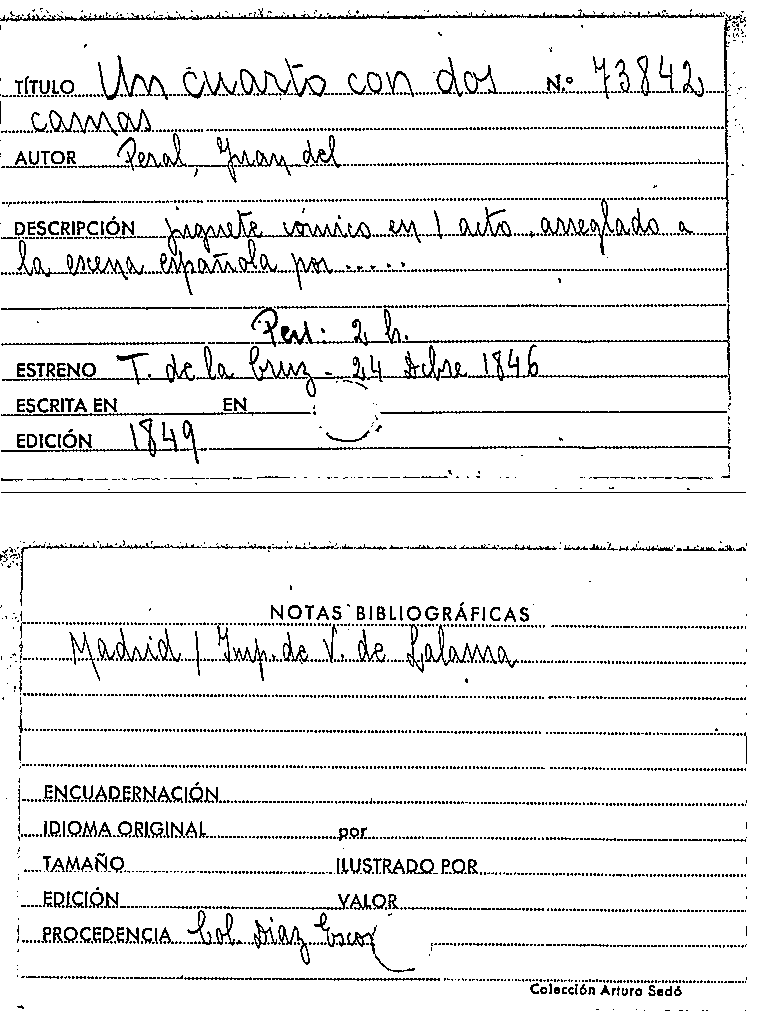 TÍTULO Un cuarto con dos N.º 73842
camas
AUTOR Peral, Juan del
DESCRIPCIÓN juguete cómico en 1 acto, arreglado a
la escena española por.....
Pers: 2 h.
ESTRENO T. de la Cruz - 24 Dcbre 1846
ESCRITA EN EN
EDICIÓN 1849
NOTAS BIBLIOGRÁFICAS
Madrid / Imp. de V. de Lalama
ENCUADERNACIÓN
IDIOMA ORIGINAL por
TAMAÑO ILUSTRADO POR
EDICIÓN VALOR
PROCEDENCIA Col. Diaz Escor
Colección Arturo Sedó